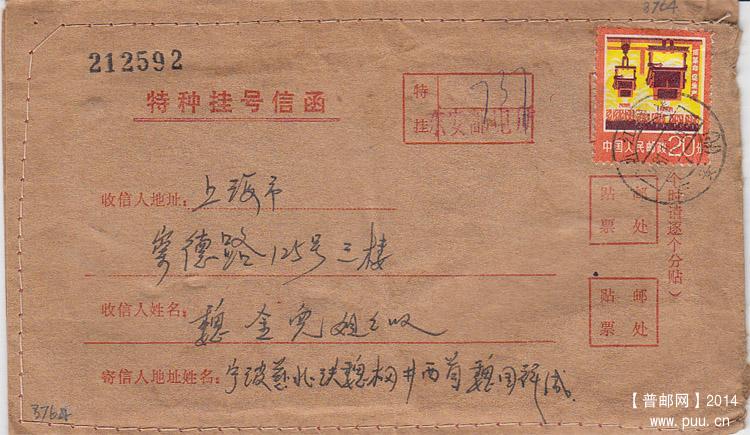 3764
212592
特种挂号信函
特
挂
737
东安邮电所
中国人民邮政 20分
收信人地址:上海市
宁德路125号三楼
贴 邮
票 处
个时请逐个分贴)
收信人姓名:魏金宽姐之收
贴 邮
票 处
寄信人地址姓名:宁波慈北
魏国祥
3764
【普邮网】2014
www.puu.cn